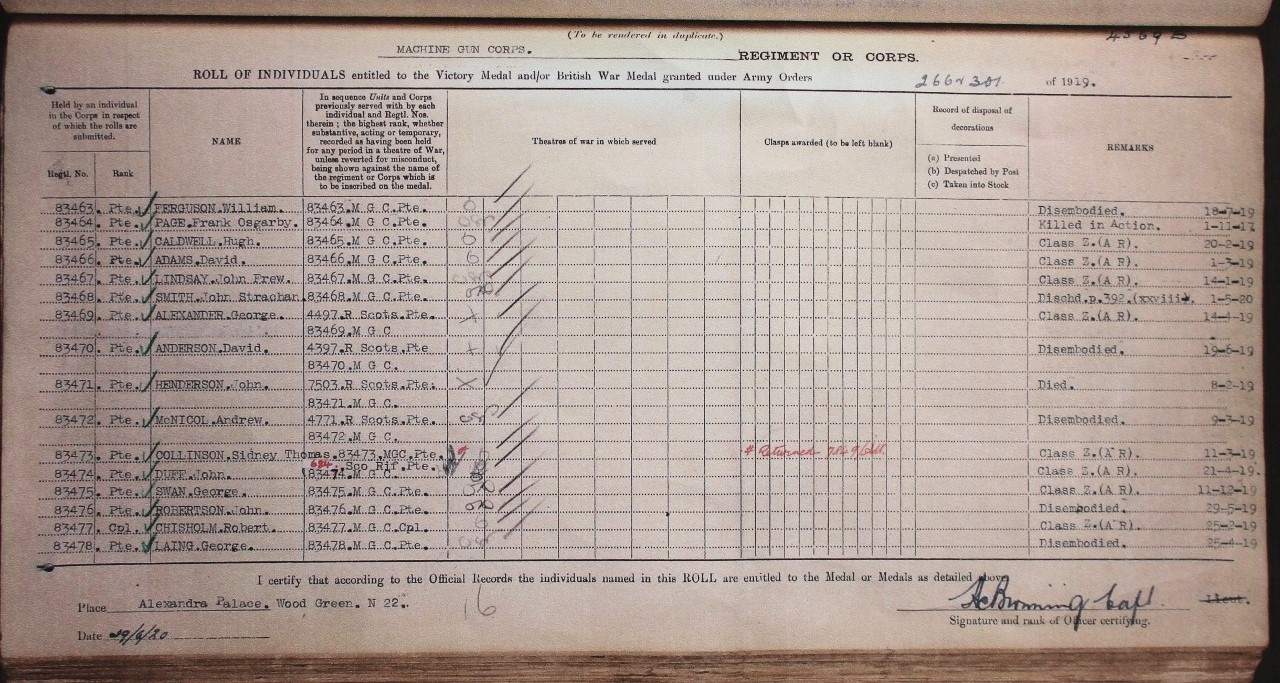 (To be rendered in duplicate.)
MACHINE GUN CORPS. REGIMENT OR CORPS.
ROLL OF INDIVIDUALS entitled to the Victory Medal and/or British War Medal granted under Army Orders 266 & 301 of 1919.
Held by an individual in the Corps in respect of which the rolls are submitted.
Regtl. No. Rank
NAME
In sequence Units and Corps previously served with by each individual and Regtl. Nos. therein ; the highest rank, whether substantive, acting or temporary, recorded as having been held for any period in a theatre of War, unless reverted for misconduct, being shown against the name of the regiment or Corps which is to be inscribed on the medal.
Theatres of war in which served
Clasps awarded (to be left blank)
Record of disposal of decorations
(a) Presented
(b) Despatched by Post
(c) Taken into Stock
REMARKS
83463. Pte. FERGUSON.William. 83463.M G C.Pte. Disembodied. 18-7-19
83464. Pte. PAGE.Frank Osgarby. 83464.M G C.Pte. Killed in Action. 1-11-17
83465. Pte. CALDWELL.Hugh. 83465.M G C.Pte. Class Z.(A R). 20-2-19
83466. Pte. ADAMS.David. 83466.M G C.Pte. Class Z.(A R). 1-3-19
83467. Pte. LINDSAY.John Frew. 83467.M G C.Pte. Class Z.(A R). 14-1-19
83468. Pte. SMITH.John Strachan. 83468.M G C.Pte. Dischd.p.392.(xxviii). 1-5-20
83469. Pte. ALEXANDER.George. 4497.R Scots.Pte. Class Z.(A R). 14-4-19
83469.M G C.
83470. Pte. ANDERSON.David. 4397.R Scots.Pte Disembodied. 19-6-19
83470.M G C.
83471. Pte. HENDERSON.John. 7503.R Scots.Pte. Died. 8-2-19
83471.M G C.
83472. Pte. McNICOL.Andrew. 4771.R Scots.Pte. Disembodied. 9-3-19
83472.M G C.
83473. Pte. COLLINSON.Sidney Thomas.83473.MGC.Pte. # Returned Class Z.(A R). 11-3-19
Sco Rif.Pte.
83474. Pte. DUFF.John. 83474.M G C. Class Z.(A R). 21-4-19.
83475. Pte. SWAN.George. 83475.M G C.Pte. Class Z.(A R). 11-12-19
83476. Pte. ROBERTSON.John. 83476.M G C.Pte. Disembodied. 29-5-19
83477. Cpl. CHISHOLM.Robert. 83477.M G C.Cpl. Class Z.(A R). 25-2-19
83478. Pte. LAING.George. 83478.M G C.Pte. Disembodied. 25-4-19
I certify that according to the Official Records the individuals named in this ROLL are entitled to the Medal or Medals as detailed above
Place Alexandra Palace. Wood Green. N 22. 16 Browning Capt. Lieut.
Signature and rank of Officer certifying.
Date 29/6/20